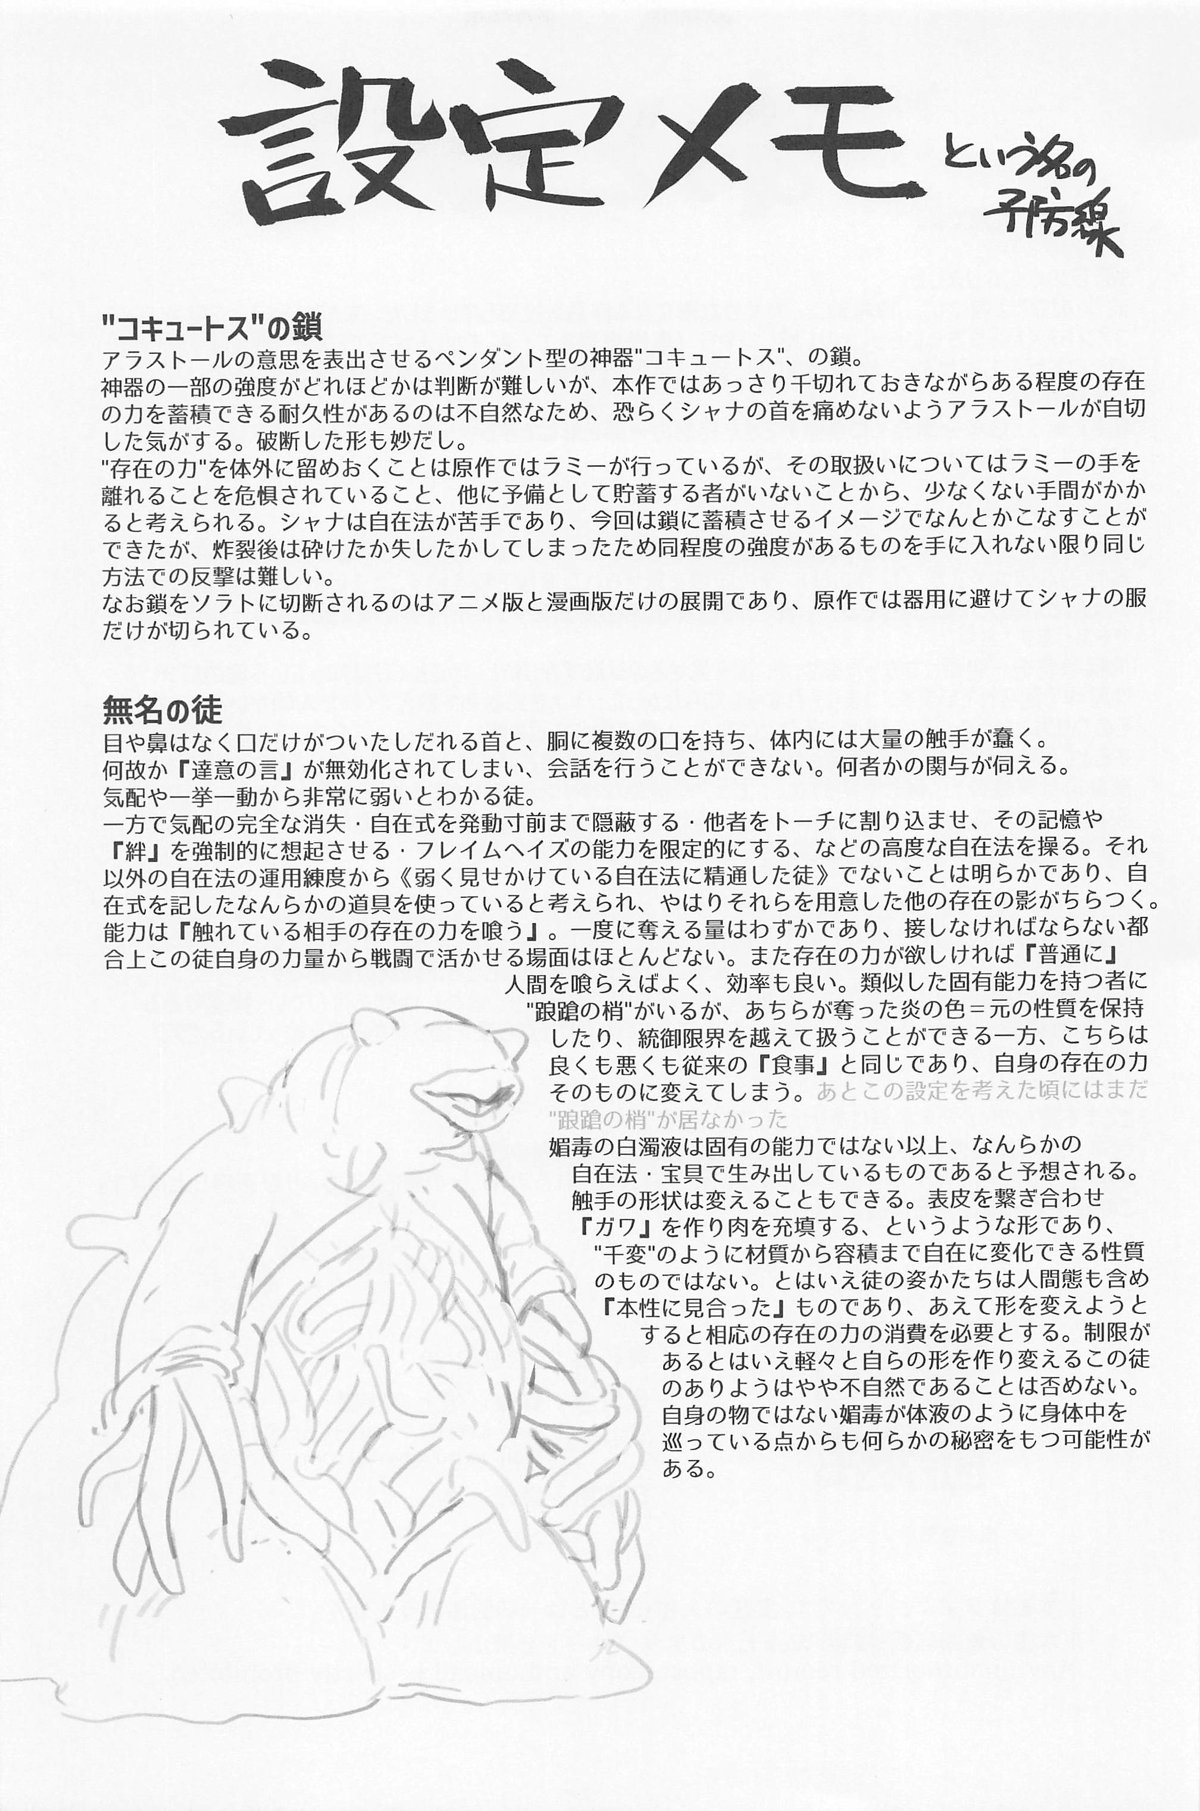 設定メモ
という名の
予防線
"コキュートス"の鎖
アラストールの意思を表出させるペンダント型の神器"コキュートス"、の鎖。
神器の一部の強度がどれほどかは判断が難しいが、本作ではあっさり千切れておきながらある程度の存在
の力を蓄積できる耐久性があるのは不自然なため、恐らくシャナの首を痛めないようアラストールが自切
した気がする。破断した形も妙だし。
"存在の力"を体外に留めおくことは原作ではラミーが行っているが、その取扱いについてはラミーの手を
離れることを危惧されていること、他に予備として貯蓄する者がいないことから、少なくない手間がかか
ると考えられる。シャナは自在法が苦手であり、今回は鎖に蓄積させるイメージでなんとかこなすことが
できたが、炸裂後は砕けたか失したかしてしまったため同程度の強度があるものを手に入れない限り同じ
方法での反撃は難しい。
なお鎖をソラトに切断されるのはアニメ版と漫画版だけの展開であり、原作では器用に避けてシャナの服
だけが切られている。
無名の徒
目や鼻はなく口だけがついたしだれる首と、胴に複数の口を持ち、体内には大量の触手が蠢く。
何故か『達意の言』が無効化されてしまい、会話を行うことができない。何者かの関与が伺える。
気配や一挙一動から非常に弱いとわかる徒。
一方で気配の完全な消失・自在式を発動寸前まで隠蔽する・他者をトーチに割り込ませ、その記憶や
『絆』を強制的に想起させる・フレイムヘイズの能力を限定的にする、などの高度な自在法を操る。それ
以外の自在法の運用練度から《弱く見せかけている自在法に精通した徒》でないことは明らかであり、自
在式を記したなんらかの道具を使っていると考えられ、やはりそれらを用意した他の存在の影がちらつく。
能力は『触れている相手の存在の力を喰う』。一度に奪える量はわずかであり、接しなければならない都
合上この徒自身の力量から戦闘で活かせる場面はほとんどない。また存在の力が欲しければ『普通に』
人間を喰らえばよく、効率も良い。類似した固有能力を持つ者に
"踉蹌の梢"がいるが、あちらが奪った炎の色＝元の性質を保持
したり、統御限界を越えて扱うことができる一方、こちらは
良くも悪くも従来の『食事』と同じであり、自身の存在の力
そのものに変えてしまう。あとこの設定を考えた頃にはまだ
"踉蹌の梢"が居なかった
媚毒の白濁液は固有の能力ではない以上、なんらかの
自在法・宝具で生み出しているものであると予想される。
触手の形状は変えることもできる。表皮を繋ぎ合わせ
『ガワ』を作り肉を充填する、というような形であり、
"千変"のように材質から容積まで自在に変化できる性質
のものではない。とはいえ徒の姿かたちは人間態も含め
『本性に見合った』ものであり、あえて形を変えようと
すると相応の存在の力の消費を必要とする。制限が
あるとはいえ軽々と自らの形を作り変えるこの徒
のありようはやや不自然であることは否めない。
自身の物ではない媚毒が体液のように身体中を
巡っている点からも何らかの秘密をもつ可能性が
ある。